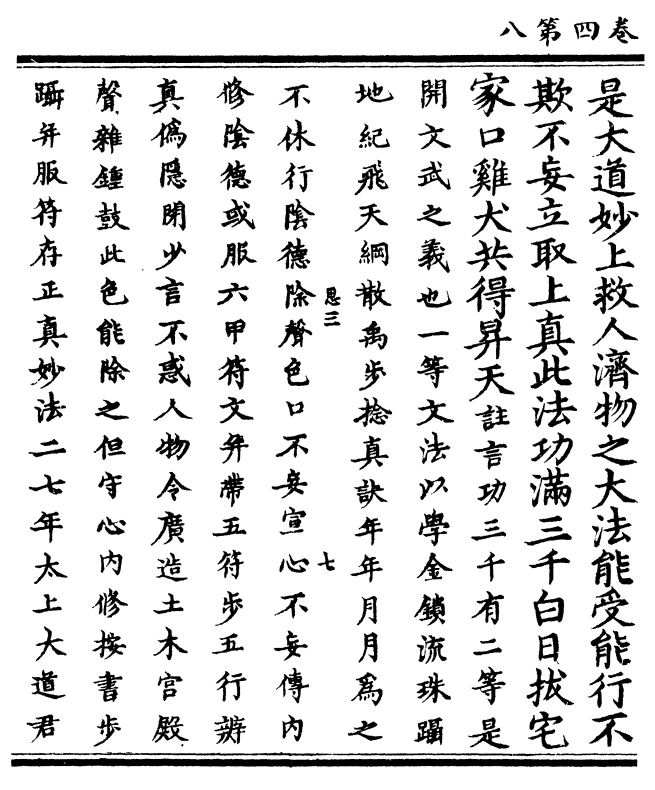 卷四第八
是大道妙上救人濟物之大法能受能行不
欺不妄立取上真此法功滿三千白日拔宅
家口雞犬共得昇天註言功三千有二等是
開文武之義也一等文法以學金鎖流珠躡
地紀飛天綱散禹步捻真訣年年月月為之
恩三 七
不休行陰德除聲色口不妄宣心不妄傳內
修陰德或服六甲符文并帶五符步五行辨
真偽隱閉少言不惑人物令廣造土木宮殿
聲雜鍾鼓此色能除之但守心內修按書步
躡并服符存正真妙法二七年太上大道君